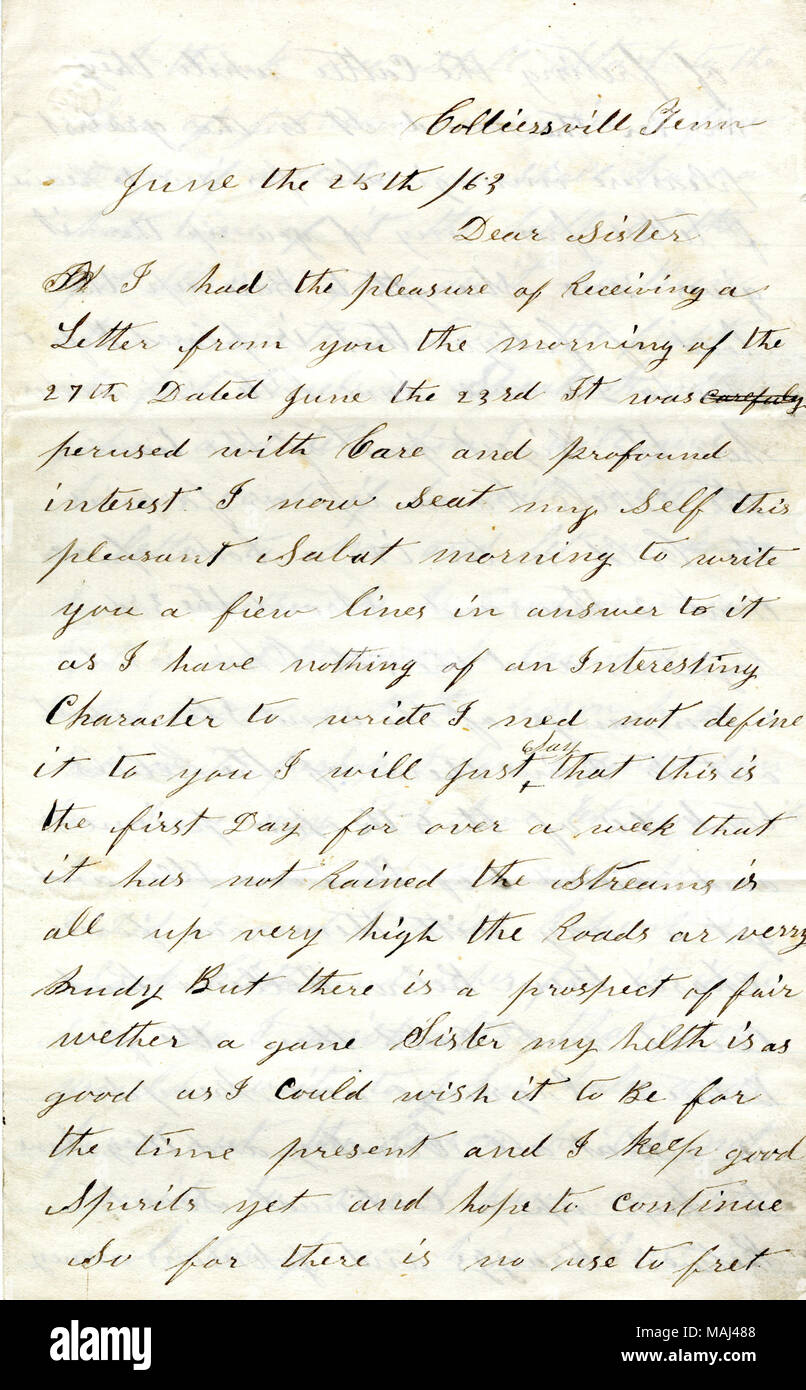 Colliersvill Tenn
June the 28th /63
Dear Sister
I had the pleasure of Receiving a
Letter from you the morning of the
27th Dated June the 23rd It was carefuly
perused with Care and profound
interest I now Seat my Self this
pleasant Sabat morning to write
you a fiew lines in answer to it
as I have nothing of an Interesting
Character to write I ned not define
it to you I will Just Say that this is
the first Day for over a week that
it has not Rained the Streams is
all up very high the Roads ar verry
mudy But there is a prospect of fair
wether a gane Sister my helth is as
good as I Could wish it to Be for
the time present and I keep good
Spirits yet and hope to Continue
So for there is no use to fret
alamy
Image ID: MAJ488
www.alamy.com